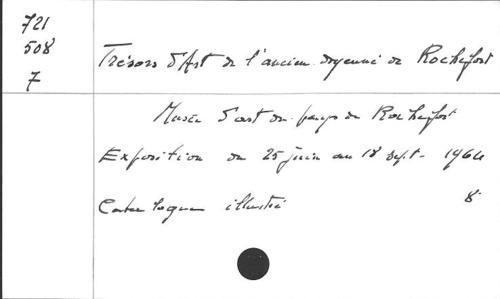 721
508
7
Trésors d'Art de l'ancien doyenné de Rochefort
Musée d'art du pays de Rochefort
Exposition du 25 juin au 18 sept. 1964
Catalogue illustré 8°